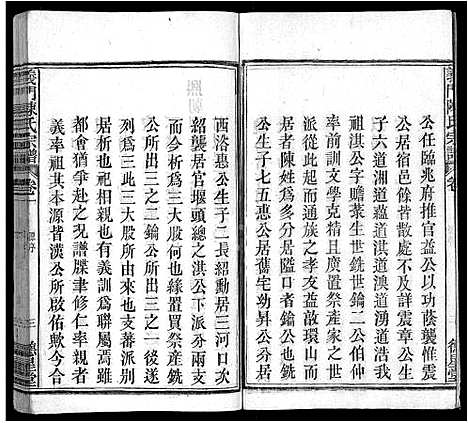 義門陳氏宗譜 卷
公任臨兆府推官益公以功蔭襲惟震
公居宿邑餘皆散處不及備載章公生
子六道湘道蘊道淇道澳道湧道㵎道
湘公字贍棻生世銑世鑰二公伯仲
恪前訓文學克精廣置祭產家之世
派從此起而通族之孝友益敵環山而
居者陳姓㷀多分居隘口者鑰公也世
公生子七五惠公居舊宅幼昇公分居
西洛惠公生子二長紹勳居三河口次
紹襲居官堰頭總之淇公下派分兩支
而今析為三大股何也緣置買祭產銑
公所出三之二鑰公所出三之一後遂
列爲三此三大股所由稱也雖我族散
居析也祀相親也有義訓爲聯屬焉雖
都會猶爭赴之況譜牒聿修仁率親者
義率祖其本源皆漢公所啟佑歟今合
義門陳氏宗譜 卷一
三 德星堂
德星堂